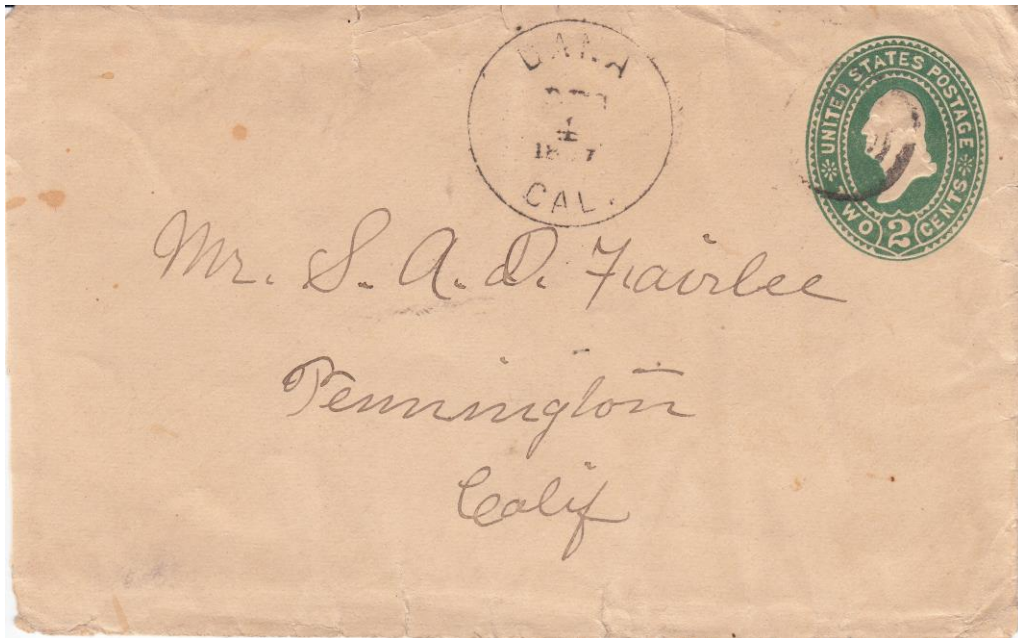 DANA
4
CAL.
UNITED STATES POSTAGE
TWO 2 CENTS
Mr. S. A. D. Fairlee
Pennington
Calif